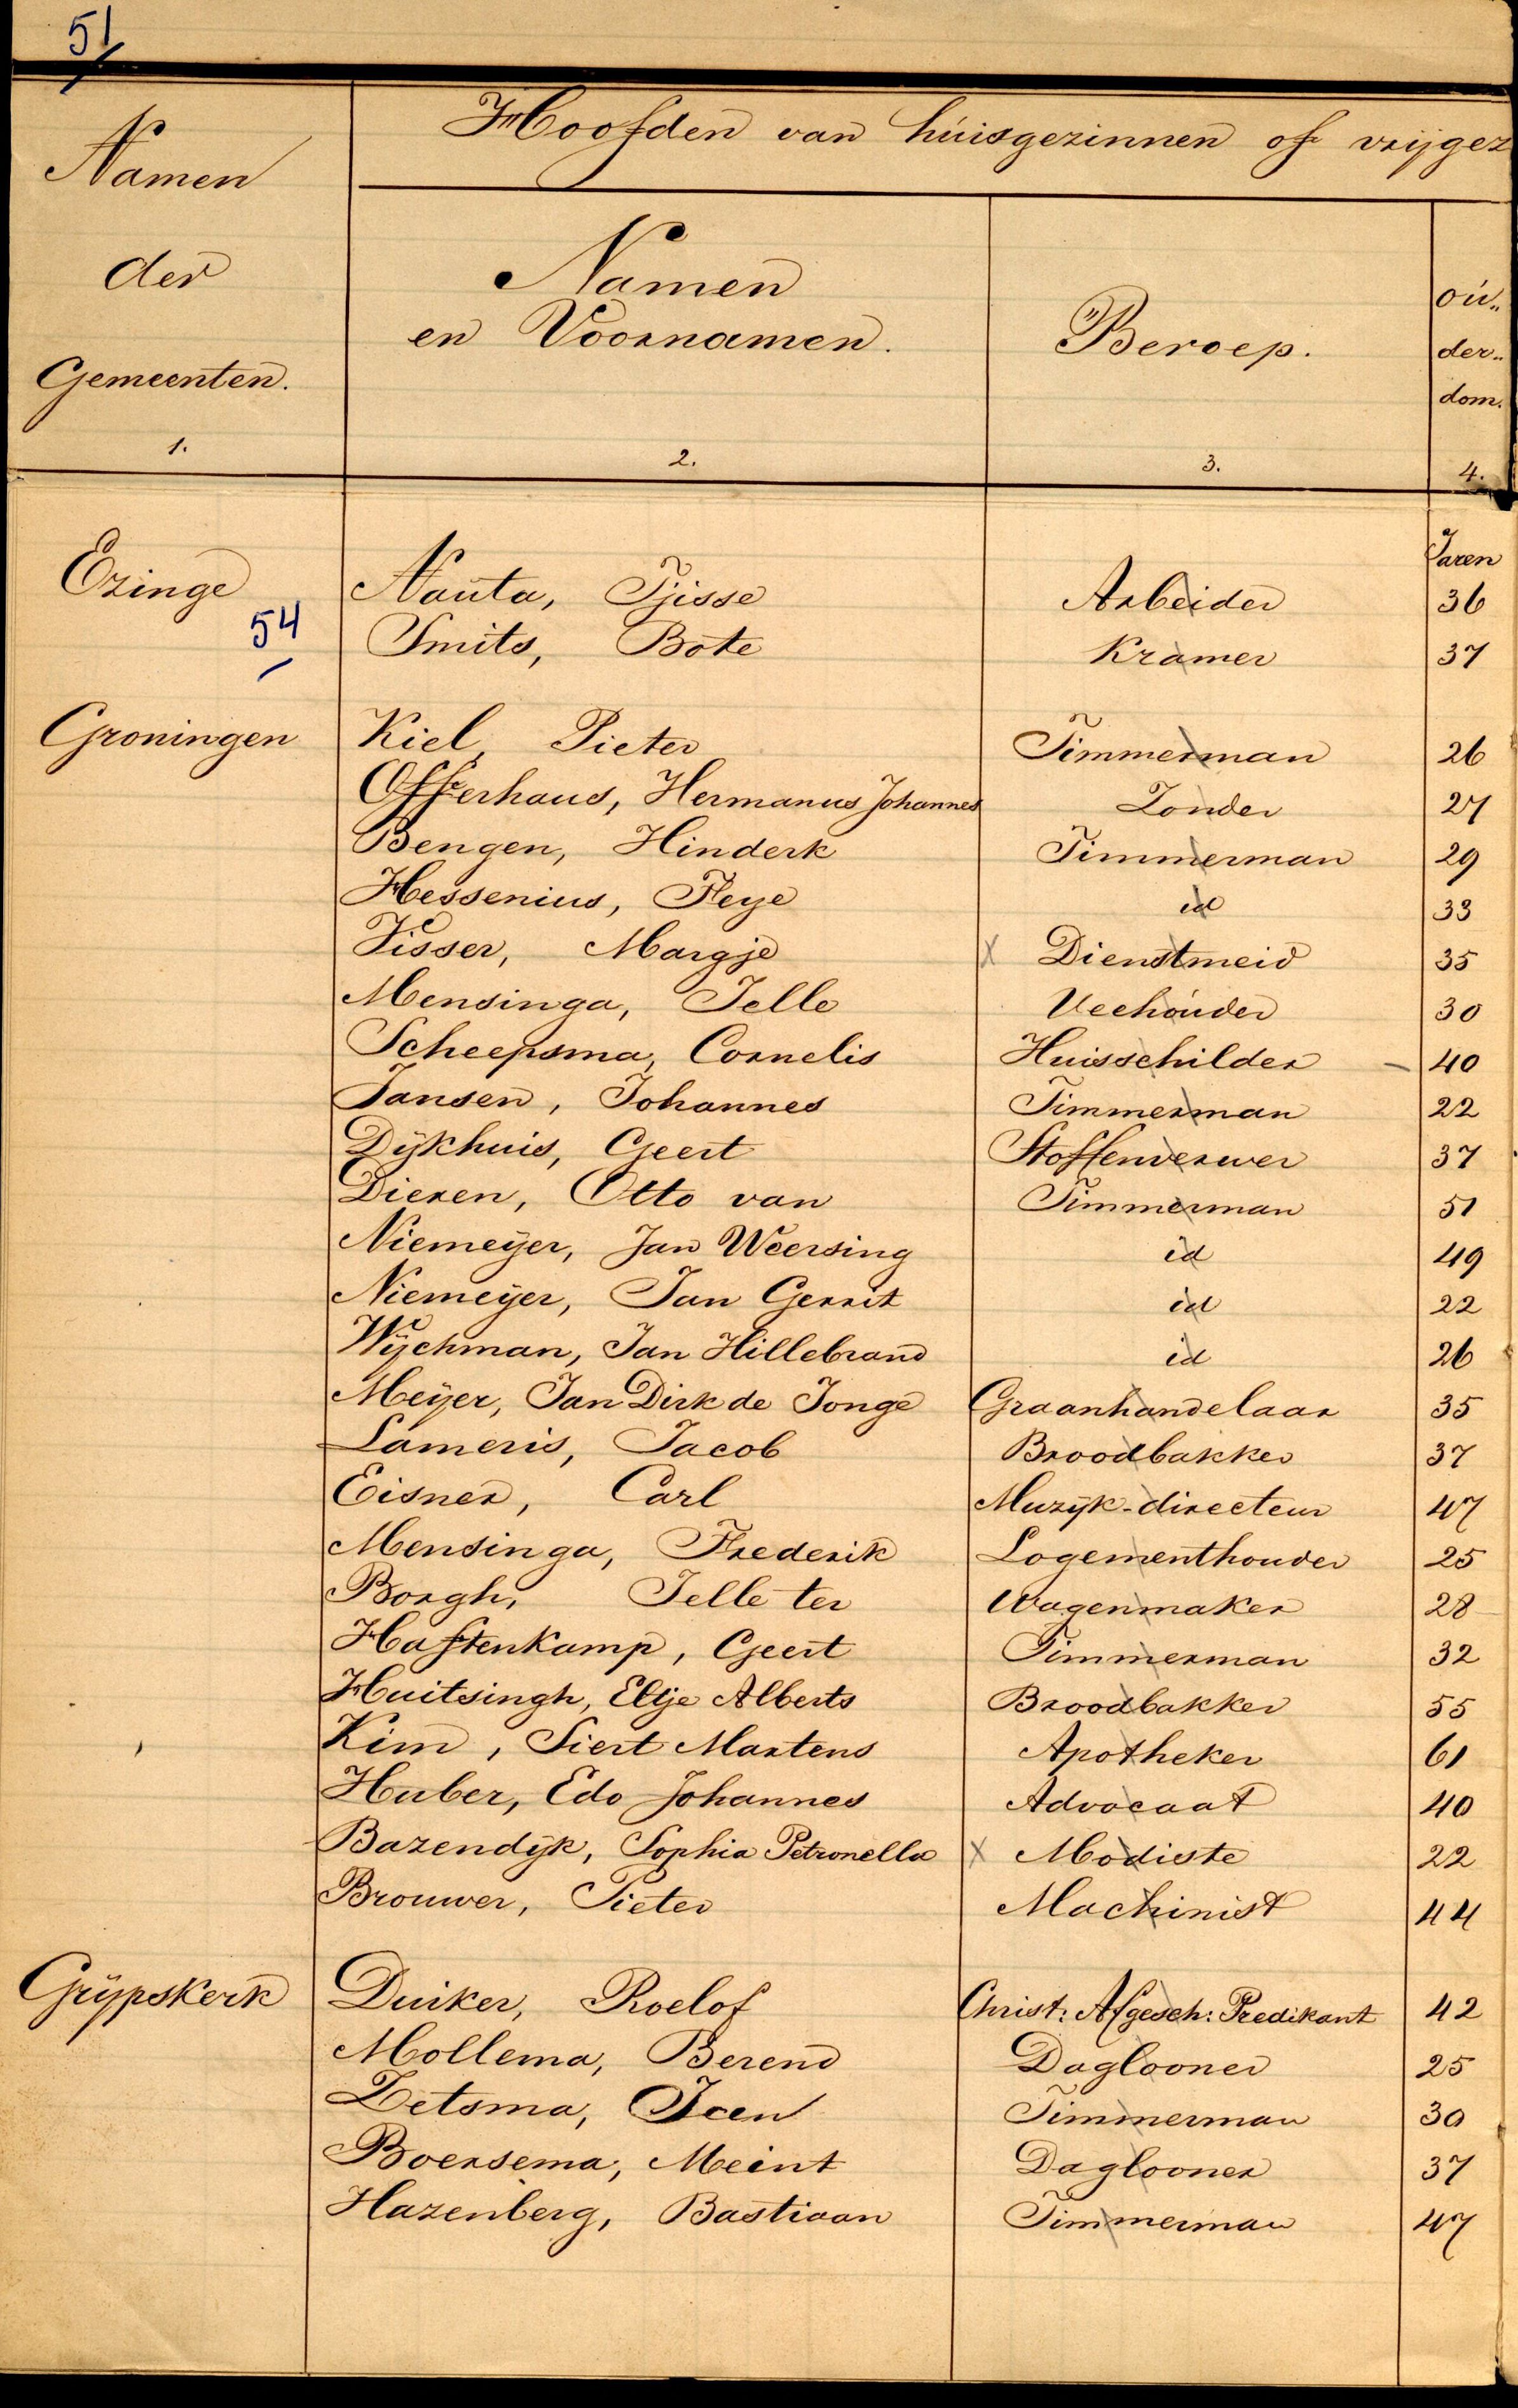 51
Namen
der
Gemeenten.
1.
Hoofden van huisgezinnen of vrijgez
Namen
en Voornamen.
2.
Beroep.
3.
ou„
der„
dom.
4.
Jaren
Ezinge Nauta, Tjisse Arbeider 36
54 Smits, Bote Kramer 37
Groningen Kiel, Pieter Timmerman 26
Offerhaus, Hermanus Johannes Zonder 27
Bengen, Hinderk Timmerman 29
Hessenius, Feye id 33
Visser, Margje X Dienstmeid 35
Mensinga, Jelle Veehouder 30
Scheepsma, Cornelis Huisschilder 40
Jansen, Johannes Timmerman 22
Dijkhuis, Geert Stoffenverwer 37
Dieren, Otto van Timmerman 51
Niemeijer, Jan Weersing id 49
Niemeijer, Jan Gerrit id 22
Wijchman, Jan Hillebrand id 26
Meijer, Jan Dirk de Jonge Graanhandelaar 35
Lameris, Jacob Broodbakker 37
Eisner, Carl Muzijk-directeur 47
Mensinga, Frederik Logementhouder 25
Borgh, Jelle ter Wagenmaker 28
Haftenkamp, Geert Timmerman 32
Huitsingh, Eltje Alberts Broodbakker 55
Kim, Siert Martens Apotheker 61
Huber, Edo Johannes Advocaat 40
Bazendijk, Sophia Petronella X Modiste 22
Brouwer, Pieter Machinist 44
Grijpskerk Duiker, Roelof Christ: Afgesch: Predikant 42
Mollema, Berend Daglooner 25
Zetsma, Icen Timmerman 30
Boersema, Meint Daglooner 37
Hazenberg, Bastiaan Timmerman 47